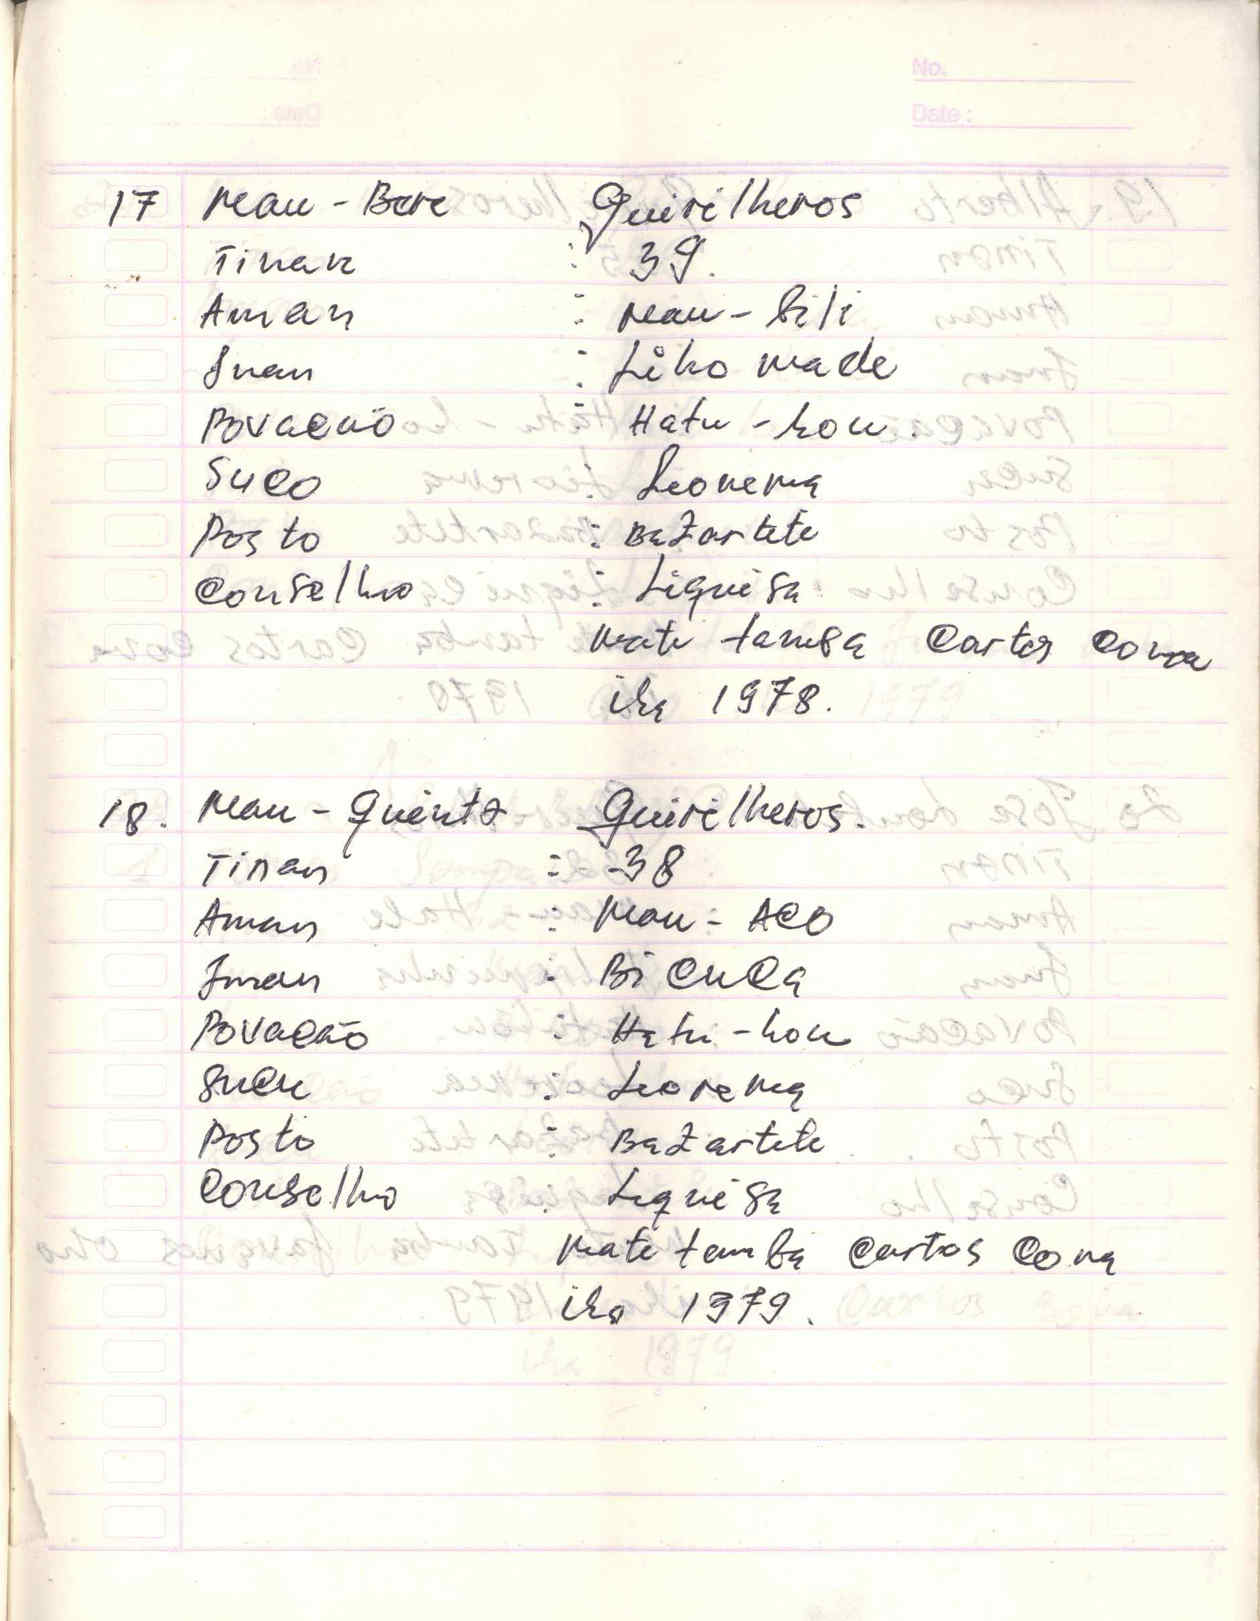 No.
Date:
17 Mau-Bere Guirilheros
Tinan : 39.
Aman : Mau-Bili
Inan : Liko Made
Povacão : Hatu-hou.
Suco : Leorema
Posto : Bazartete
Conselho : Liquisa
Mate tamba Cartos Cona
iha 1978.
18. Mau-Quinta Guirilheros.
Tinan : 38
Aman : Mau-ACO
Inan : Bi Cuca
Povacão : Hatu-hou
Sucu : Leorema
Posto : Bazartete
Conselho : Liquisa
Mate tamba Cartos Cona
iha 1979.